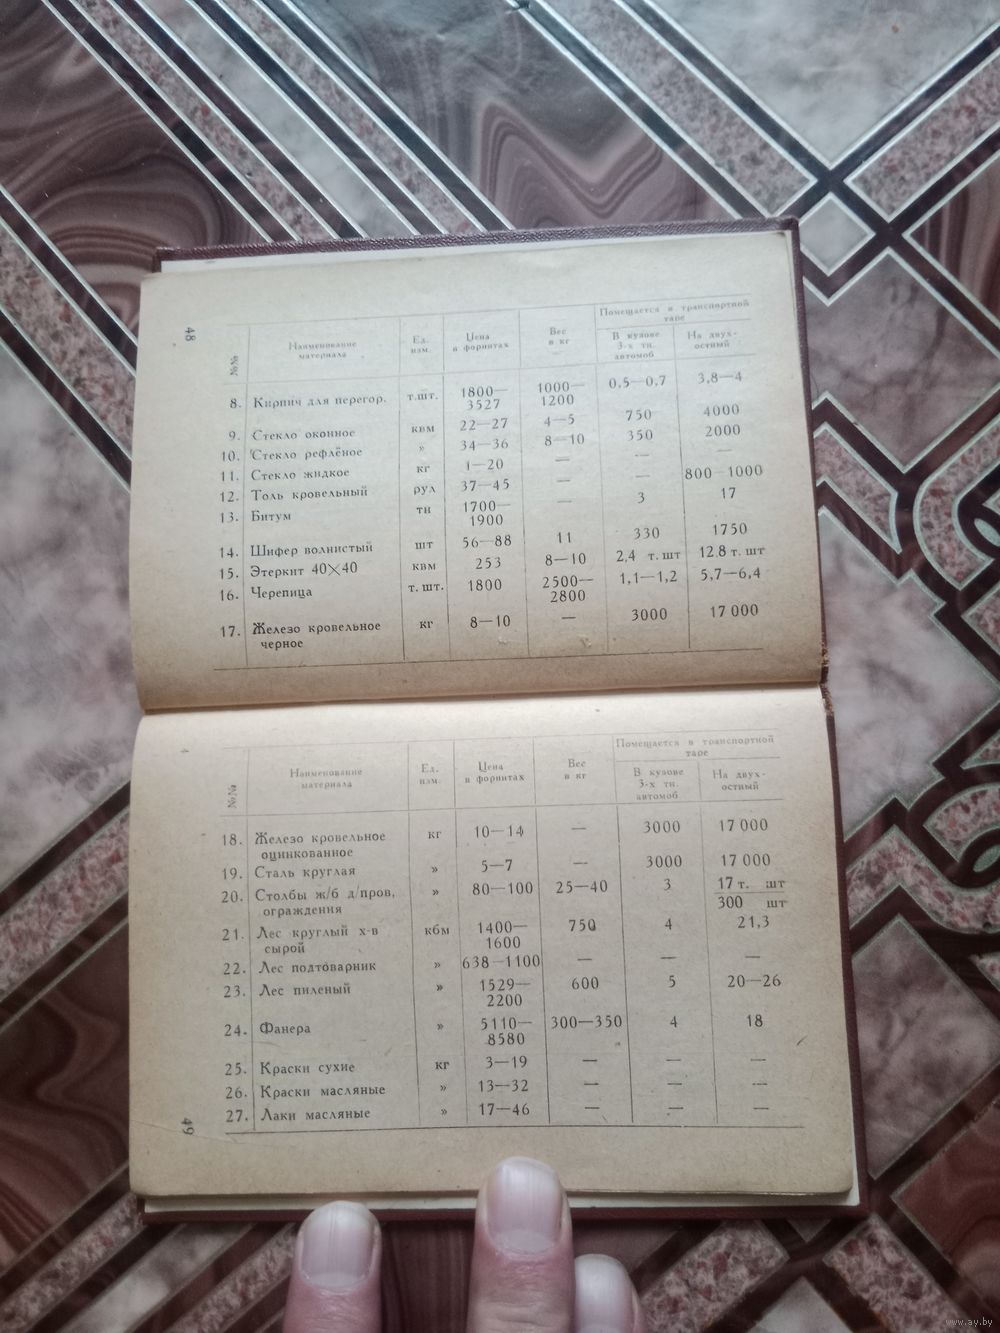 48
№№ Наименование материала Ед. изм. Цена в форинтах Вес в кг Помещается в транспортной таре
В кузове 3-х тн. автомоб На двух-остный
8. Кирпич для перегор. т.шт. 1800—3527 1000—1200 0,5—0,7 3,8—4
9. Стекло оконное квм 22—27 4—5 750 4000
10. Стекло рефлёное » 34—36 8—10 350 2000
11. Стекло жидкое кг 1—20 — — —
12. Толь кровельный рул 37—45 — — 800—1000
13. Битум тн 1700—1900 — 3 17
14. Шифер волнистый шт 56—88 11 330 1750
15. Этеркит 40×40 квм 253 8—10 2,4 т. шт 12.8 т. шт
16. Черепица т. шт. 1800 2500—2800 1,1—1,2 5,7—6,4
17. Железо кровельное черное кг 8—10 — 3000 17 000
4
№№ Наименование материала Ед. изм. Цена в форинтах Вес в кг Помещается в транспортной таре
В кузове 3-х тн. автомоб На двух-остный
18. Железо кровельное оцинкованное кг 10—14 — 3000 17 000
19. Сталь круглая » 5—7 — 3000 17 000
20. Столбы ж/б д/пров. ограждения » 80—100 25—40 3 17 т. шт 300 шт
21. Лес круглый х-в сырой кбм 1400—1600 750 4 21,3
22. Лес подтоварник » 638—1100 — — —
23. Лес пиленый » 1529—2200 600 5 20—26
24. Фанера » 5110—8580 300—350 4 18
25. Краски сухие кг 3—19 — — —
26. Краски масляные » 13—32 — — —
27. Лаки масляные » 17—46 — — —
49
www.ay.by